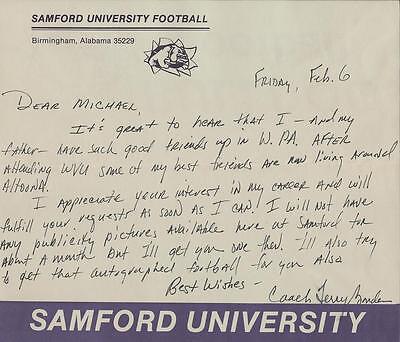 SAMFORD UNIVERSITY FOOTBALL
Birmingham, Alabama 35229
FRIDAY, Feb. 6
DEAR MICHAEL,
It's great to hear that I - and my
father - have such good friends up in W. PA. AFTER
Attending WVU some of my best friends are now living around
Altoona.
I appreciate your interest in my career and will
fulfill your requests as soon as I can. I will not have
any publicity pictures available here at Samford for
about a month but I'll get you one then. I'll also try
to get that autographed football for you also
Best Wishes -
Coach Terry Bowden
SAMFORD UNIVERSITY